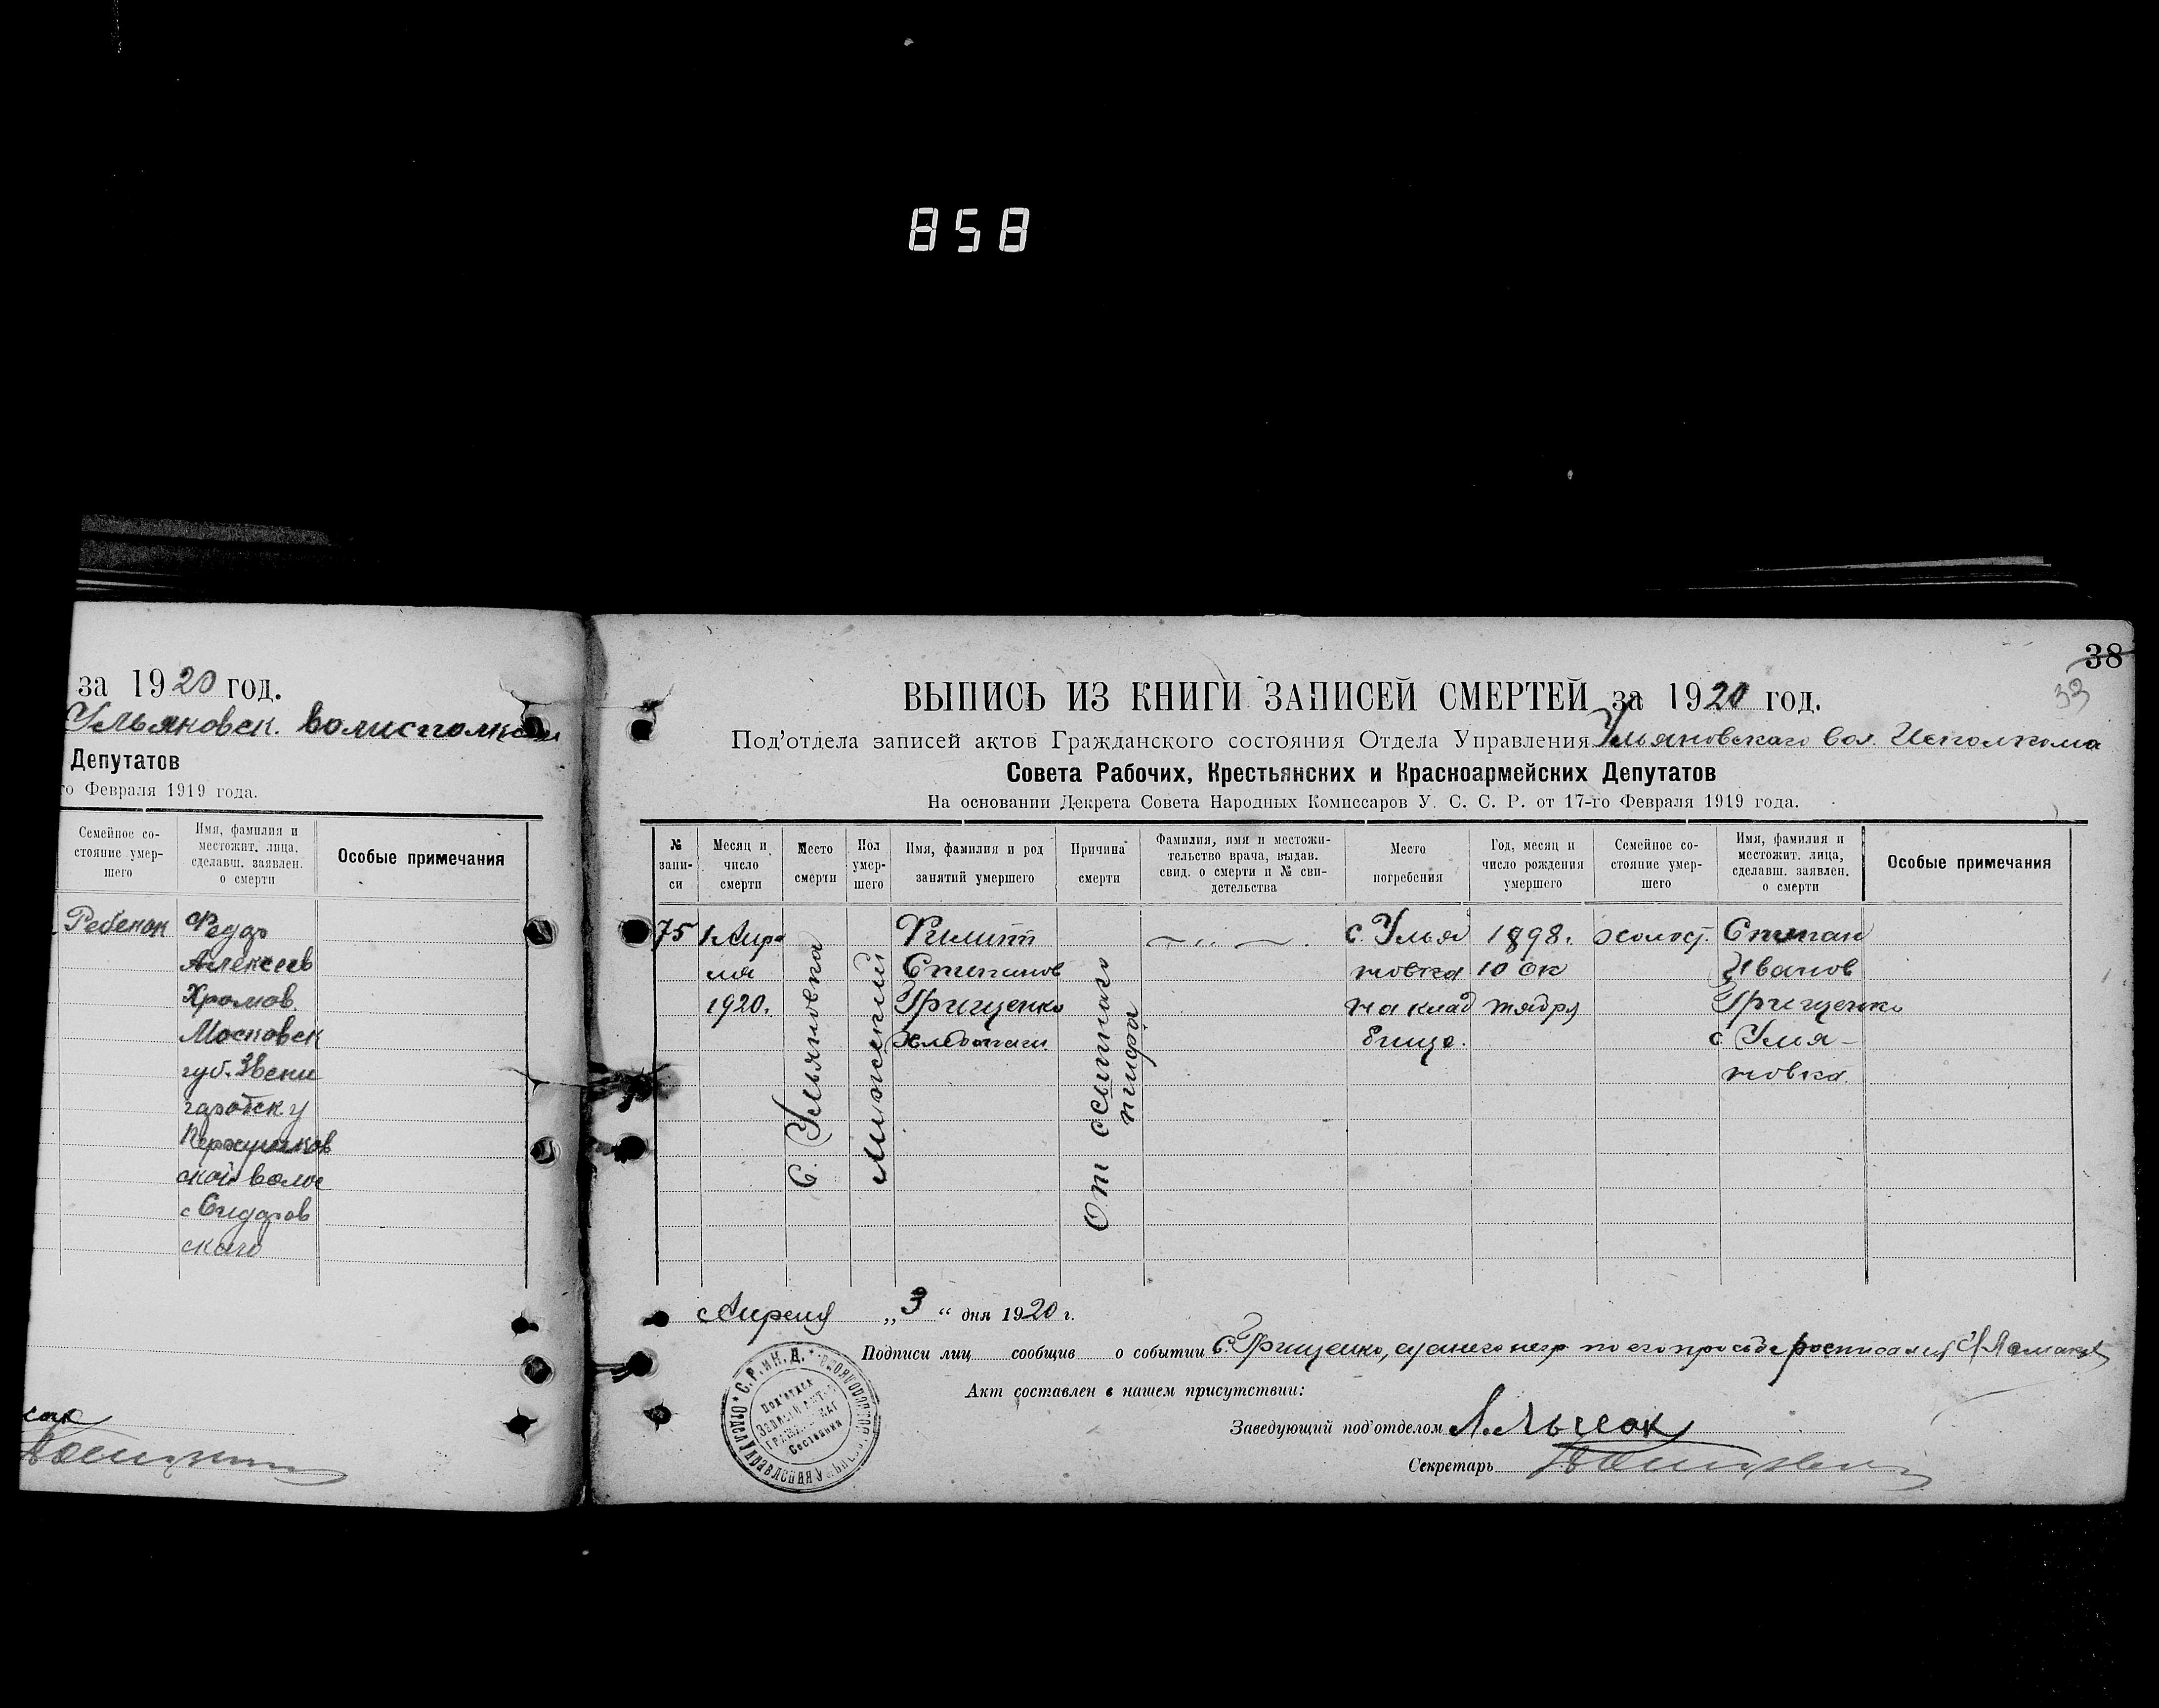 858
за 1920 год.
Ульяновск. волисполком
Депутатов
го Февраля 1919 года.
Семейное со-
стояние умер-
шего
Имя, фамилия и
местожит. лица,
сделавш. заявлен.
о смерти
Особые примечания
Ребенок
Федор
Алексеев
Хромов
Московск
губ. Звени
городск у
ской волос
с Сидоров
ского
38
33
ВЫПИСЬ ИЗ КНИГИ ЗАПИСЕЙ СМЕРТЕЙ за 1920 год.
Под'отдела записей актов Гражданского состояния Отдела Управления Ульяновскаго вол. Исполкома
Совета Рабочих, Крестьянских и Красноармейских Депутатов
На основании Декрета Совета Народных Комиссаров У. С. С. Р. от 17-го Февраля 1919 года.
№
запи-
си
Месяц и
число
смерти
Место
смерти
Пол
умер-
шего
Имя, фамилия и род
занятий умершего
Причина
смерти
Фамилия, имя и местожи-
тельство врача, выдав.
свид. о смерти и № сви-
детельства
Место
погребения
Год, месяц и
число рождения
умершего
Семейное со-
стояние умер-
шего
Имя, фамилия и
местожит. лица,
сделавш. заявлен.
о смерти
Особые примечания
75
1 Апре
ля
1920.
С. Ульяновка
Мужеский
Филипп
Степанов
Грищенко
Хлебопаш.
От сыпного
тифа
с. Улья
новка
на клад
бище.
1898.
10 ок
тября
холост.
Степан
Иванов
Грищенко
с Улья-
новка
Апреля „3“ дня 1920 г.
Подписи лиц сообщив о событии С. Грищенко, а за него негр. по его просьбе росписался
Акт составлен в нашем присутствии:
Заведующий под'отделом
Секретарь
С.Р. и К.Д.
Отдел Управления
Под'отдел
Записи акт.
Граждан
Состояния